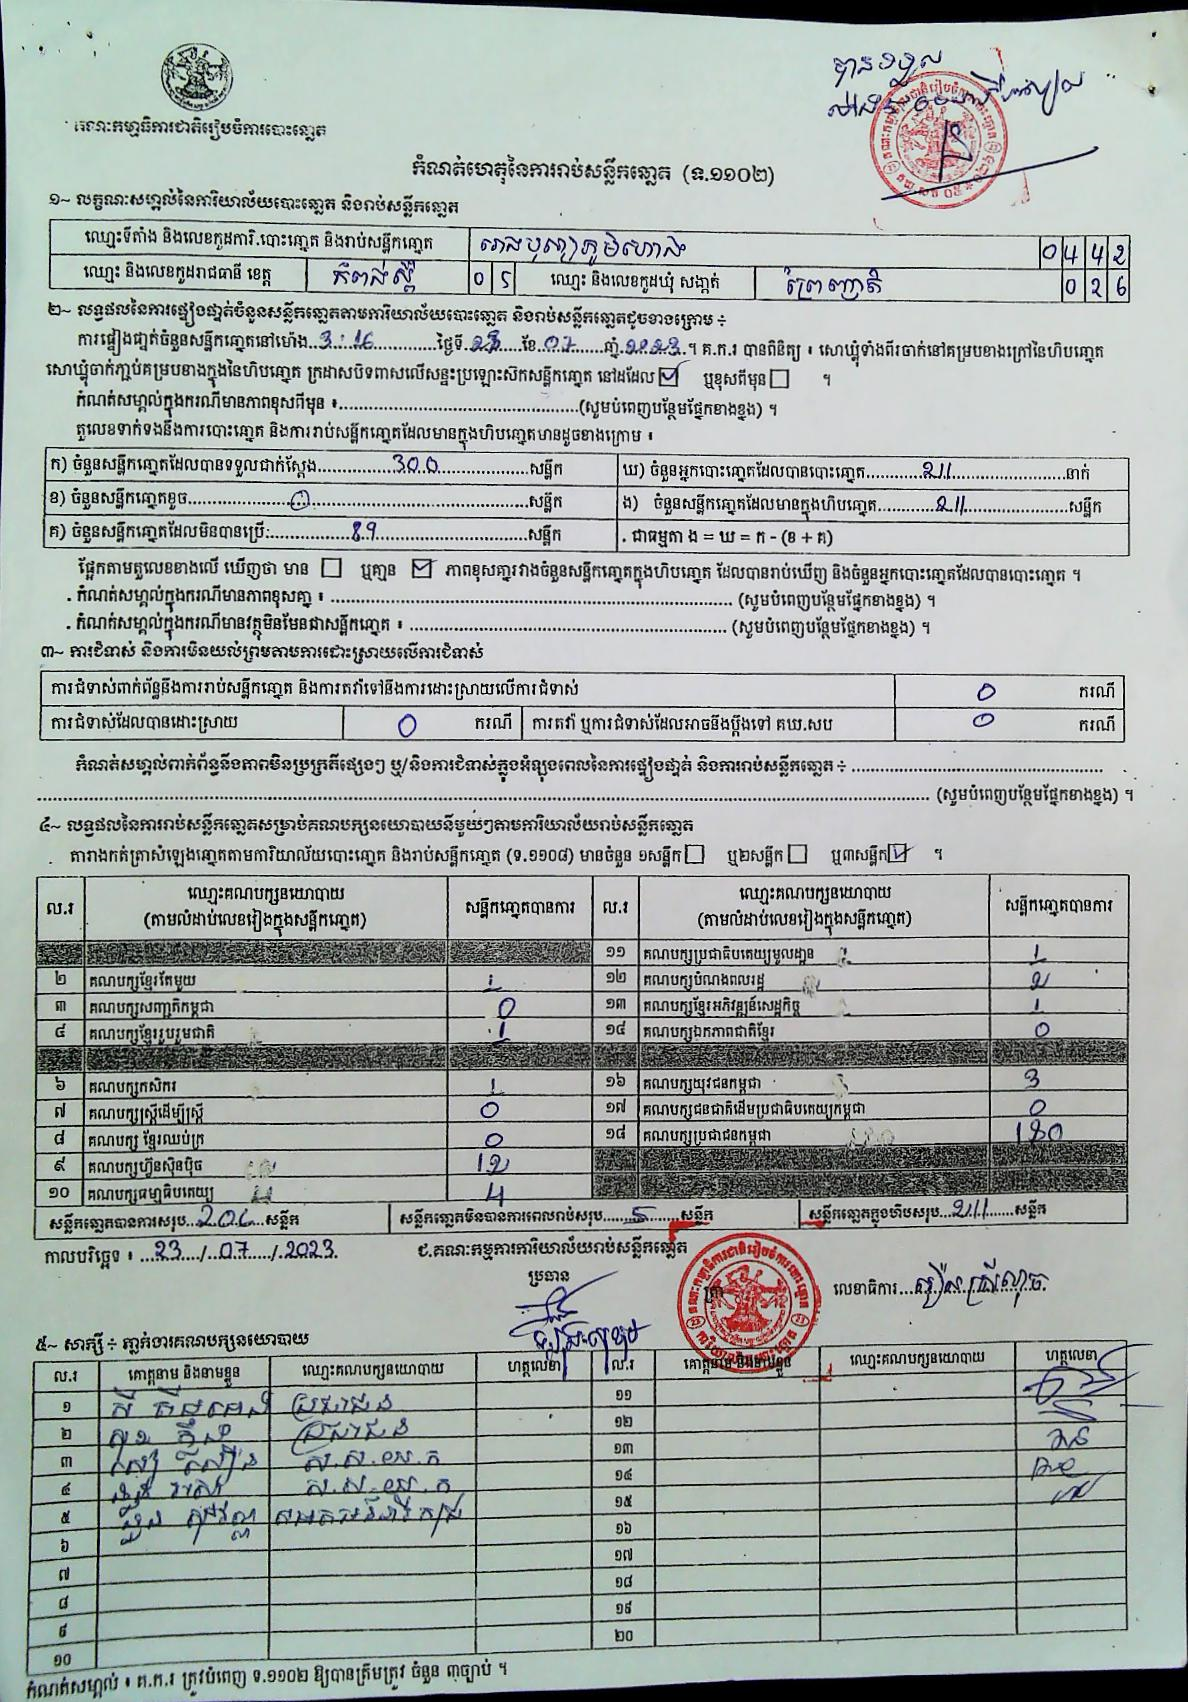 គណៈកម្មាធិការជាតិរៀបចំការបោះឆ្នោត
កំណត់ហេតុនៃការរាប់សន្លឹកឆ្នោត (ទ.១១០២)
១~ លក្ខណៈសម្គាល់នៃការិយាល័យបោះឆ្នោត និងរាប់សន្លឹកឆ្នោត
ឈ្មោះទីតាំង និងលេខកូដការិ.បោះឆ្នោត និងរាប់សន្លឹកឆ្នោត 0442
ឈ្មោះ និងលេខកូដរាជធានី ខេត្ត កំពង់ស្ពឺ 05 ឈ្មោះ និងលេខកូដឃុំ សង្កាត់ 026
២~ លទ្ធផលនៃការផ្ទៀងផ្ទាត់ចំនួនសន្លឹកឆ្នោតតាមការិយាល័យបោះឆ្នោត និងរាប់សន្លឹកឆ្នោតដូចខាងក្រោម ÷
ការផ្ទៀងផ្ទាត់ចំនួនសន្លឹកឆ្នោតនៅម៉ោង..3:16......ថ្ងៃទី.23....ខែ.07....ឆ្នាំ.2023.។ គ.ក.រ បានពិនិត្យ ៖ សោឃ្លុំទាំងពីរចាក់នៅគម្របខាងក្រៅនៃហិបឆ្នោត
សោឃ្លុំចាក់ភ្ជាប់គម្របខាងក្នុងនៃហិបឆ្នោត ក្រដាសបិទពាសលើសន្ទះប្រឡោះស៊កសន្លឹកឆ្នោត នៅដដែល ☑ ឬខុសពីមុន ☐ ។
កំណត់សម្គាល់ក្នុងករណីមានភាពខុសពីមុន ៖........................(សូមបំពេញបន្ថែមផ្នែកខាងខ្នង) ។
តួលេខទាក់ទងនឹងការបោះឆ្នោត និងការរាប់សន្លឹកឆ្នោតដែលមានក្នុងហិបឆ្នោតមានដូចខាងក្រោម ៖
ក) ចំនួនសន្លឹកឆ្នោតដែលបានទទួលជាក់ស្តែង........300........សន្លឹក ឃ) ចំនួនអ្នកបោះឆ្នោតដែលបានបោះឆ្នោត........211........នាក់
ខ) ចំនួនសន្លឹកឆ្នោតខូច........0........សន្លឹក ង) ចំនួនសន្លឹកឆ្នោតដែលមានក្នុងហិបឆ្នោត........211........សន្លឹក
គ) ចំនួនសន្លឹកឆ្នោតដែលមិនបានប្រើ:........89........សន្លឹក . ជាធម្មតា ង = ឃ = ក - (ខ + គ)
ផ្អែកតាមតួលេខខាងលើ ឃើញថា មាន ☐ ឬគ្មាន ☑ ភាពខុសគ្នារវាងចំនួនសន្លឹកឆ្នោតក្នុងហិបឆ្នោត ដែលបានរាប់ឃើញ និងចំនួនអ្នកបោះឆ្នោតដែលបានបោះឆ្នោត ។
. កំណត់សម្គាល់ក្នុងករណីមានភាពខុសគ្នា ៖ ........................ (សូមបំពេញបន្ថែមផ្នែកខាងខ្នង) ។
. កំណត់សម្គាល់ក្នុងករណីមានវត្ថុមិនមែនជាសន្លឹកឆ្នោត ៖ ........................ (សូមបំពេញបន្ថែមផ្នែកខាងខ្នង) ។
៣~ ការជំទាស់ និងការមិនយល់ព្រមតាមការដោះស្រាយលើការជំទាស់
ការជំទាស់ពាក់ព័ន្ធនឹងការរាប់សន្លឹកឆ្នោត និងការតវ៉ាទៅនឹងការដោះស្រាយលើការជំទាស់ 0 ករណី
ការជំទាស់ដែលបានដោះស្រាយ 0 ករណី ការតវ៉ា ឬការជំទាស់ដែលអាចនឹងប្តឹងទៅ គឃ.សប 0 ករណី
កំណត់សម្គាល់ពាក់ព័ន្ធនឹងភាពមិនប្រក្រតីផ្សេងៗ ឬ/និងការជំទាស់ក្នុងអំឡុងពេលនៃការផ្ទៀងផ្ទាត់ និងការរាប់សន្លឹកឆ្នោត ÷ ........................
........................ (សូមបំពេញបន្ថែមផ្នែកខាងខ្នង) ។
៤~ លទ្ធផលនៃការរាប់សន្លឹកឆ្នោតសម្រាប់គណបក្សនយោបាយនីមួយៗតាមការិយាល័យរាប់សន្លឹកឆ្នោត
តារាងកត់ត្រាសំឡេងឆ្នោតតាមការិយាល័យបោះឆ្នោត និងរាប់សន្លឹកឆ្នោត (ទ.១១០៨) មានចំនួន ១សន្លឹក ☐ ឬ២សន្លឹក ☐ ឬ៣សន្លឹក ☑ ។
ល.រ ឈ្មោះគណបក្សនយោបាយ (តាមលំដាប់លេខរៀងក្នុងសន្លឹកឆ្នោត) សន្លឹកឆ្នោតបានការ ល.រ ឈ្មោះគណបក្សនយោបាយ (តាមលំដាប់លេខរៀងក្នុងសន្លឹកឆ្នោត) សន្លឹកឆ្នោតបានការ
១១ គណបក្សប្រជាធិបតេយ្យមូលដ្ឋាន 1
២ គណបក្សខ្មែរតែមួយ 1 ១២ គណបក្សបំណងពលរដ្ឋ 2
៣ គណបក្សសញ្ជាតិកម្ពុជា 0 ១៣ គណបក្សខ្មែរអភិវឌ្ឍន៍សេដ្ឋកិច្ច 1
៤ គណបក្សខ្មែររួបរួមជាតិ 1 ១៤ គណបក្សឯកភាពជាតិខ្មែរ 0
៦ គណបក្សកសិករ 1 ១៦ គណបក្សយុវជនកម្ពុជា 3
៧ គណបក្សស្ត្រីដើម្បីស្ត្រី 0 ១៧ គណបក្សជនជាតិដើមប្រជាធិបតេយ្យកម្ពុជា 0
៨ គណបក្ស ខ្មែរឈប់ក្រ 0 ១៨ គណបក្សប្រជាជនកម្ពុជា 180
៩ គណបក្សហ៊្វុនស៊ិនប៉ិច 12
១០ គណបក្សធម្មាធិបតេយ្យ 4
សន្លឹកឆ្នោតបានការសរុប..206....សន្លឹក សន្លឹកឆ្នោតមិនបានការពេលរាប់សរុប......5......សន្លឹក សន្លឹកឆ្នោតក្នុងហិបសរុប..211......សន្លឹក
កាលបរិច្ឆេទ ៖ ...23..../..07..../.2023. ជ.គណៈកម្មការការិយាល័យរាប់សន្លឹកឆ្នោត
ប្រធាន ត្រា លេខាធិការ...
៥~ សាក្សី ÷ ភ្នាក់ងារគណបក្សនយោបាយ
ល.រ គោត្តនាម និងនាមខ្លួន ឈ្មោះគណបក្សនយោបាយ ហត្ថលេខា ល.រ គោត្តនាម និងនាមខ្លួន ឈ្មោះគណបក្សនយោបាយ ហត្ថលេខា
១ ប្រជាជន ១១
២ ប្រជាជន ១២
៣ ស.ស.យ.ក ១៣
៤ ស.ស.យ.ក ១៤
៥ ១៥
៦ ១៦
៧ ១៧
៨ ១៨
៩ ១៩
១០ ២០
កំណត់សម្គាល់ ៖ គ.ក.រ ត្រូវបំពេញ ទ.១១០២ ឱ្យបានត្រឹមត្រូវ ចំនួន ៣ច្បាប់ ។